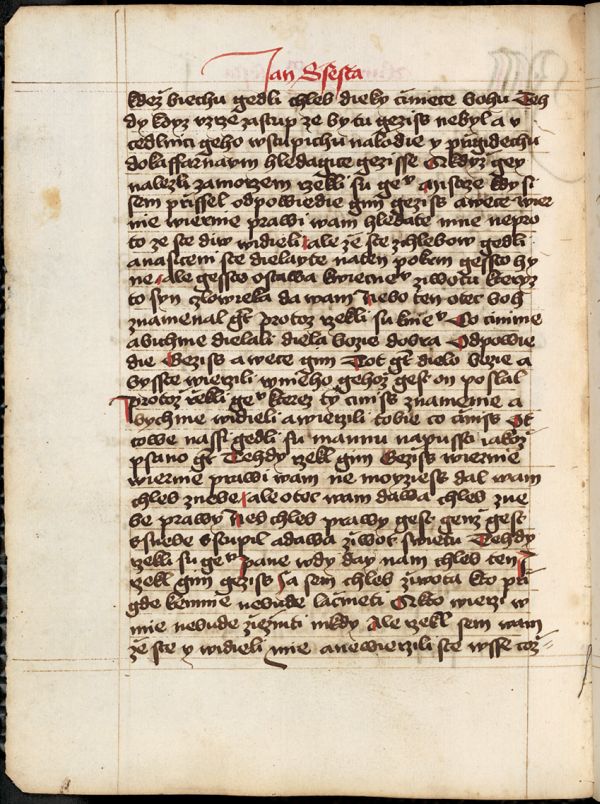 Jan Ssesta
kdež biechu gedli chleb dieky činiece bohu Teh
dy kdyz vzrze zastup ze by tu geziss nebyl a v
cedlnici geho wstupichu nalodie y przigidechu
dokaffarnaum hledagice gezisse Akdyž gey
nalezli zamorzem rzekli su gemu mistrze kdy si
sem prissel odpowiedie gim geziss awece wier
nie wiernie prawi wam hledate mne nepro
to ze ste diw widieli ale že ste zchlebow gedli
anasiceni ste dielayte naten pokrm gessto hy
ne ale gessto ostawa kwiecnemu ziwotu kteryz
to syn czlowieka da wam Nebo ten otec boh
znamenal gt Protoz rzekli su knemu Co cinime
abichme dielali diela bozie dobra Odpowie
die Geziss awece gim Tot gt dielo bozie a
bysste wierzili wnieho gehož gest on poslal
Protoz rekli gemu kterez ty ciniss znamenie a
bychme widieli awierzili tobie co činiss Ot
towe nassi gedli su mannu napussti iakož
psano gt Tehdy rzekl gim Geziss wiernie
wiernie prawi wam ne moyziess dal wam
chleb znebe ale otec wam dawa chleb zne
be prawy Neb chleb prawy gest genž gest
snebe sstupil adawa žiwot swietu Tehdy
rzekli su gemu Pane wdy day nam chleb ten
rzekl gim geziss Ja sem chleb ziwota kto pri
gde kemnie nebude lačnieti Akto wierzi w
mie nebude ziezniti nikdy Ale rzekl sem wam
že ste y widieli mie anewierzili ste wsse což